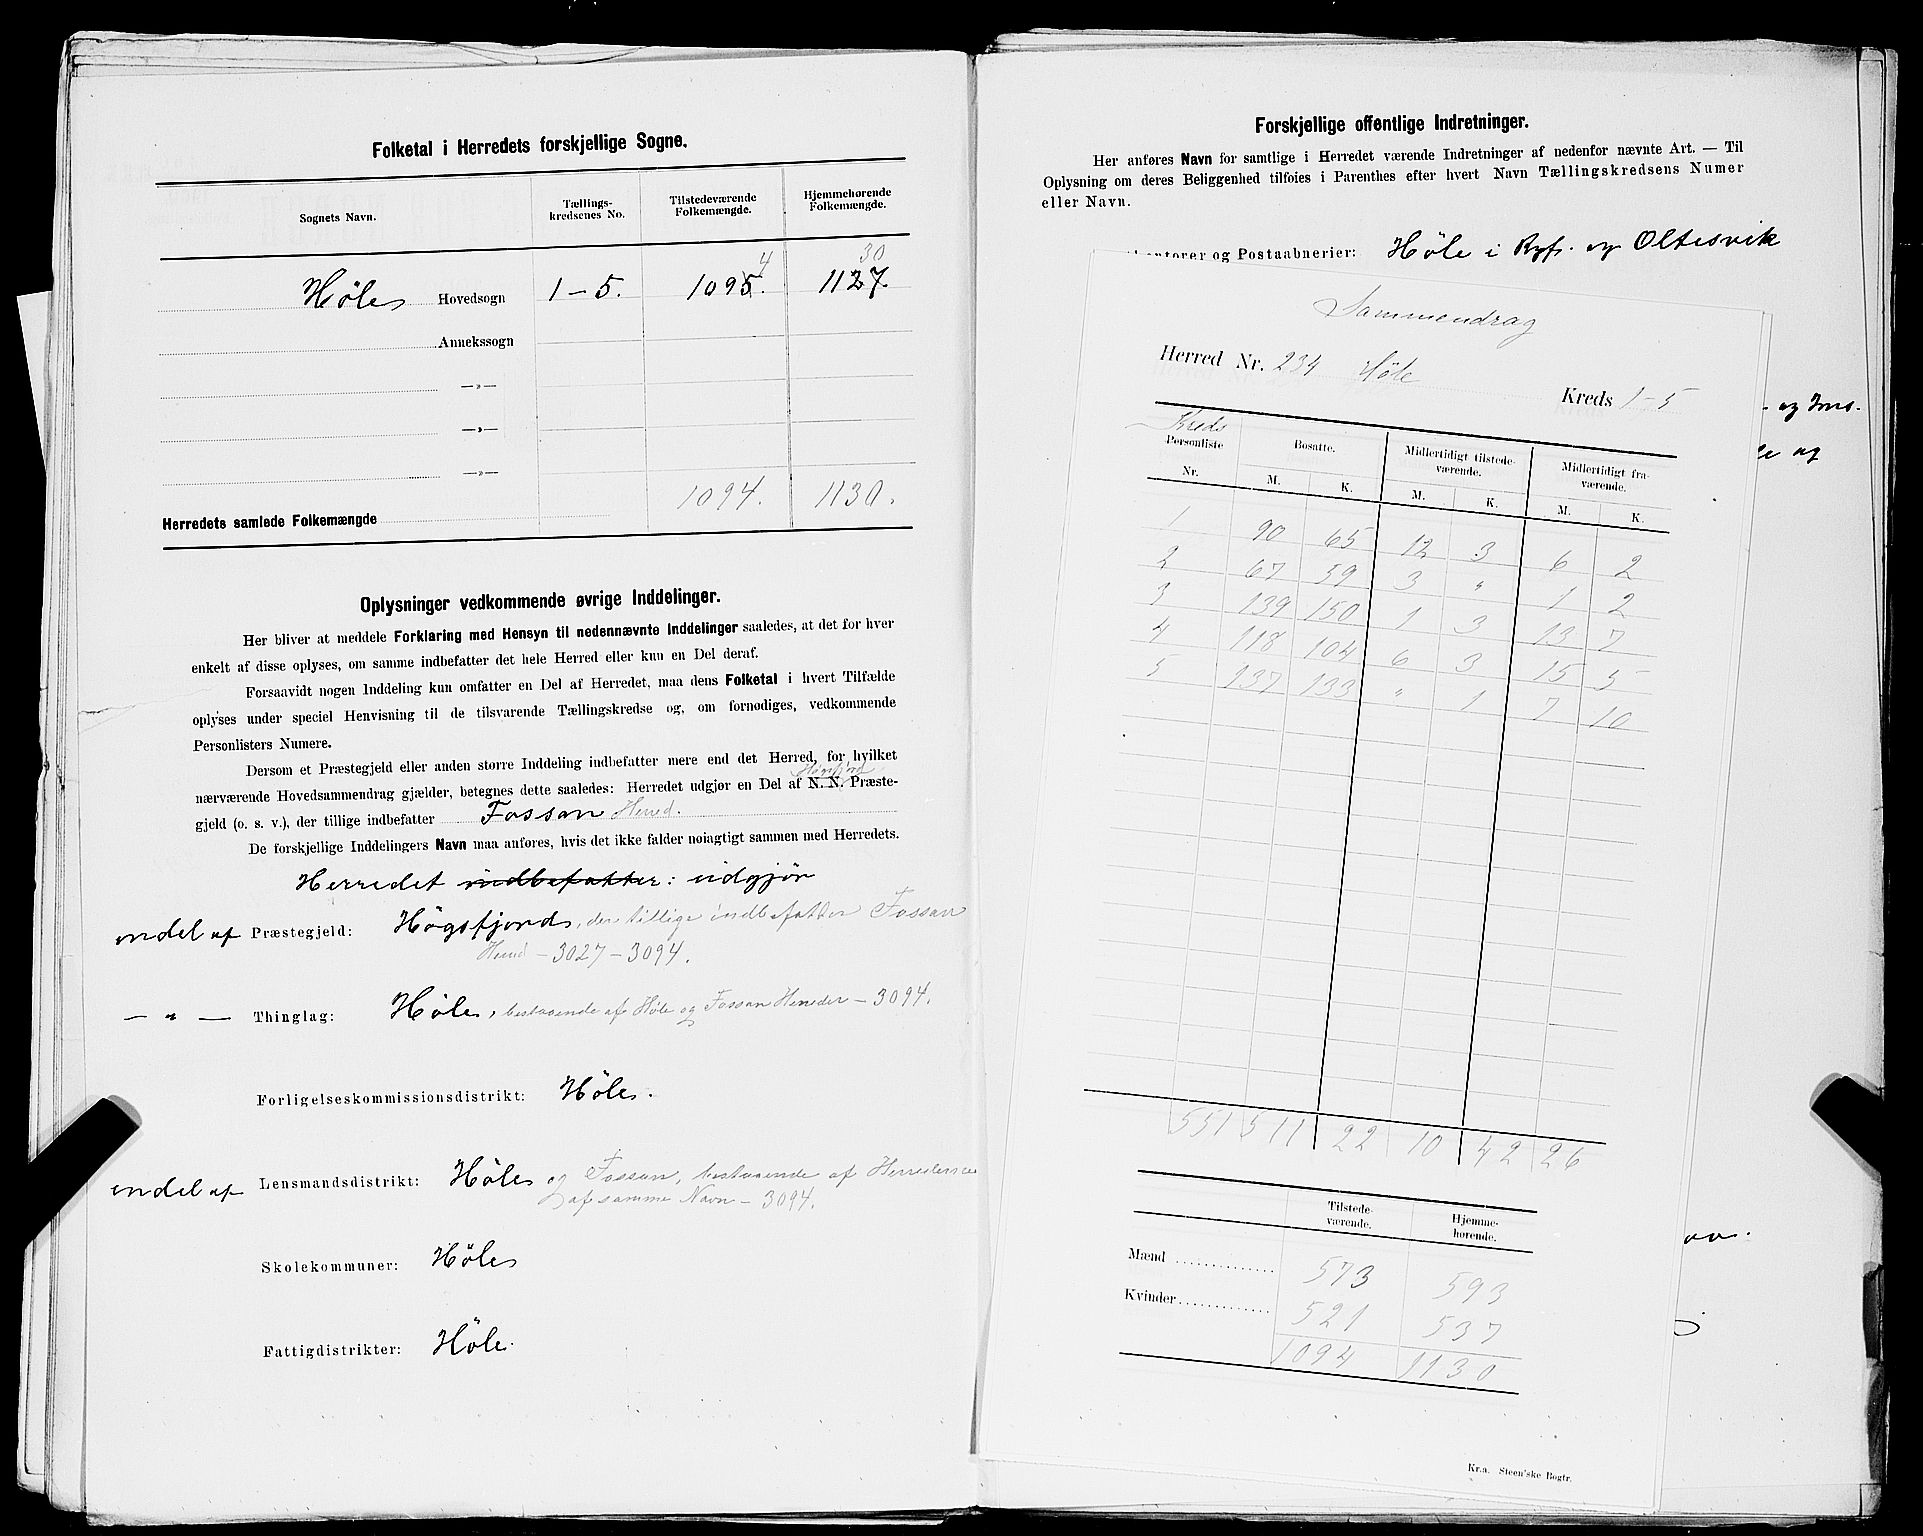 Folketal i Herredets forskjellige Sogne.
Sognets Navn. Tællings-kredsenes No. Tilstedeværende Folkemængde. Hjemmehørende Folkemængde.
4 30
Høle Hovedsogn 1-5. 1095. 1127.
Annekssogn
—»—
—»—
—»—
Herredets samlede Folkemængde 1094. 1130.
Oplysninger vedkommende øvrige Inddelinger.
Her bliver at meddele Forklaring med Hensyn til nedennævnte Inddelinger saaledes, at det for hver
enkelt af disse oplyses, om samme indbefatter det hele Herred eller kun en Del deraf.
Forsaavidt nogen Inddeling kun omfatter en Del af Herredet, maa dens Folketal i hvert Tilfælde
oplyses under speciel Henvisning til de tilsvarende Tællingskredse og, om fornødiges, vedkommende
Personlisters Numere.
Dersom et Præstegjeld eller anden større Inddeling indbefatter mere end det Herred, for hvilket
Høgsfjord
nærværende Hovedsammendrag gjælder, betegnes dette saaledes: Herredet udgjør en Del af N. N. Præste-
gjeld (o. s. v.), der tillige indbefatter Fossan Herred.
De forskjellige Inddelingers Navn maa anføres, hvis det ikke falder nøiagtigt sammen med Herredets.
Herredet indbefatter: udgjør
endel af Præstegjeld: Høgsfjord, der tillige indbefatter Fossan
Herred - 3027 - 3094.
— " — Thinglag: Høle, bestaaende af Høle og Fossan Herreder - 3094.
Forligelseskommissionsdistrikt: Høle.
endel af Lensmandsdistrikt: Høle og Fossan, bestaaende af Herrederne
af samme Navn - 3094.
Skolekommuner: Høle
Fattigdistrikter: Høle.
Forskjellige offentlige Indretninger.
Her anføres Navn for samtlige i Herredet værende Indretninger af nedenfor nævnte Art. — Til
Oplysning om deres Beliggenhed tilføies i Parenthes efter hvert Navn Tællingskredsens Numer
eller Navn.
og Postaabnerier: Høle i Ryf. og Oltesvik
Sammendrag
Herred Nr. 234 Høle Kreds 1-5
Kreds
Personliste Nr. Bosatte. Midlertidigt tilstedeværende. Midlertidigt fraværende.
M. K. M. K. M. K.
1 90 65 12 3 6 2
2 67 59 3 " 1 2
3 139 150 1 3 13 7
4 118 104 6 3 15 5
5 137 133 " 1 7 10
551 511 22 10 42 26
Tilstedeværende. Hjemmehørende.
Mænd 573 593
Kvinder 521 537
1094 1130
Kr.a. Steen'ske Bogtr.